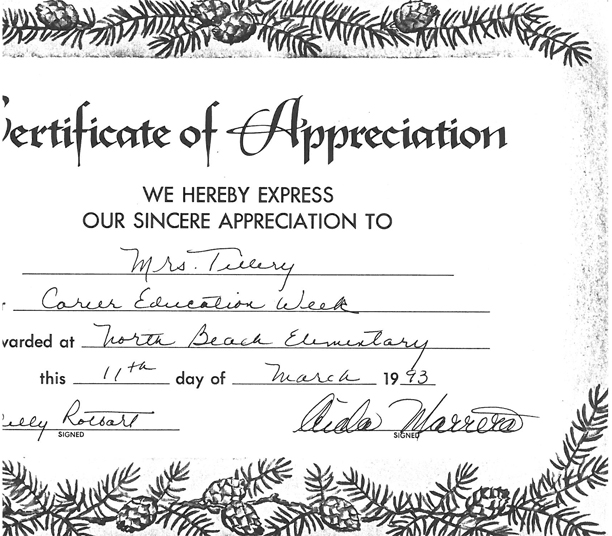 Certificate of Appreciation
WE HEREBY EXPRESS
OUR SINCERE APPRECIATION TO
Mrs. Tillery
Career Education Week
warded at North Beach Elementary
this 11th day of March 1993
Rotbart Aida Marrero
SIGNED SIGNED